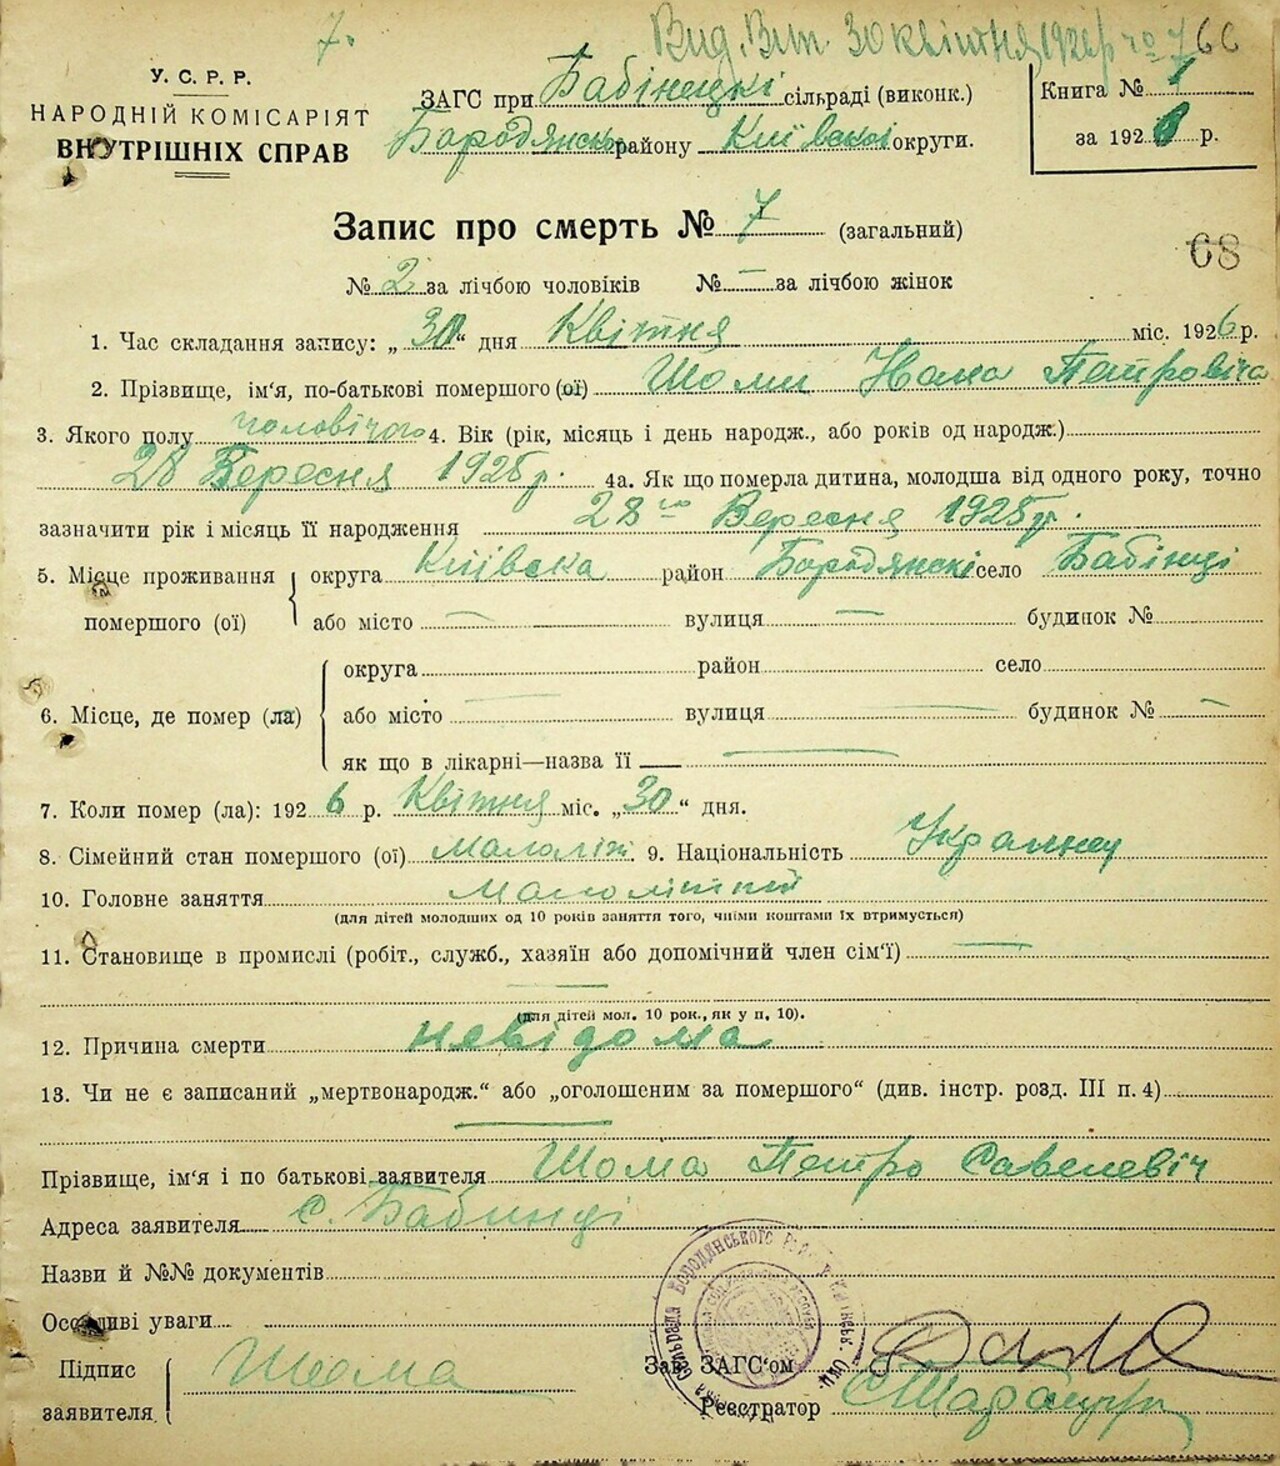 7.
Вид. Вит. 30 квітня 1926 р. № 7 66
У. С. Р. Р.
НАРОДНІЙ КОМІСАРІЯТ
ВНУТРІШНІХ СПРАВ
ЗАГС при Бабінецкі сільраді (виконк.)
Бародянско району Київскоі округи.
Книга № 1
за 1926 р.
Запис про смерть № 7 (загальний)
68
№ 2 за лічбою чоловіків № — за лічбою жінок
1. Час складання запису: „30“ дня Квітня міс. 1926 р.
2. Прізвище, ім'я, по-батькові помершого (ої) Шоми Івана Петровіча
3. Якого полу чоловічого 4. Вік (рік, місяць і день народж., або років од народж.)
28 Вересня 1925 р. 4а. Як що померла дитина, молодша від одного року, точно
зазначити рік і місяць її народження 28 го Вересня 1925 р.
5. Місце проживання помершого (ої) округа Київска район Бародянскі село Бабінці
або місто — вулиця — будинок №
6. Місце, де помер (ла) округа район село
або місто — вулиця — будинок № —
як що в лікарні—назва її —
7. Коли помер (ла): 1926 р. Квітня міс. „30“ дня.
8. Сімейний стан помершого (ої) Малоліт. 9. Національність Украинец
10. Головне заняття Малолітній
(для дітей молодших од 10 років заняття того, чиїми коштами їх втримується)
11. Становище в промислі (робіт., служб., хазяїн або допомічний член сім'ї) —
(для дітей мол. 10 рок., як у п. 10).
12. Причина смерти невідома
13. Чи не є записаний „мертвонародж.“ або „оголошеним за помершого“ (див. інстр. розд. III п. 4)
—
Прізвище, ім'я і по батькові заявителя Шома Петро Савелевіч
Адреса заявителя с. Бабинці
Назви й №№ документів
Особливі уваги
Підпис заявителя Шома
Зав. ЗАГС'ом
Реєстратор
Сільрада Бородянського